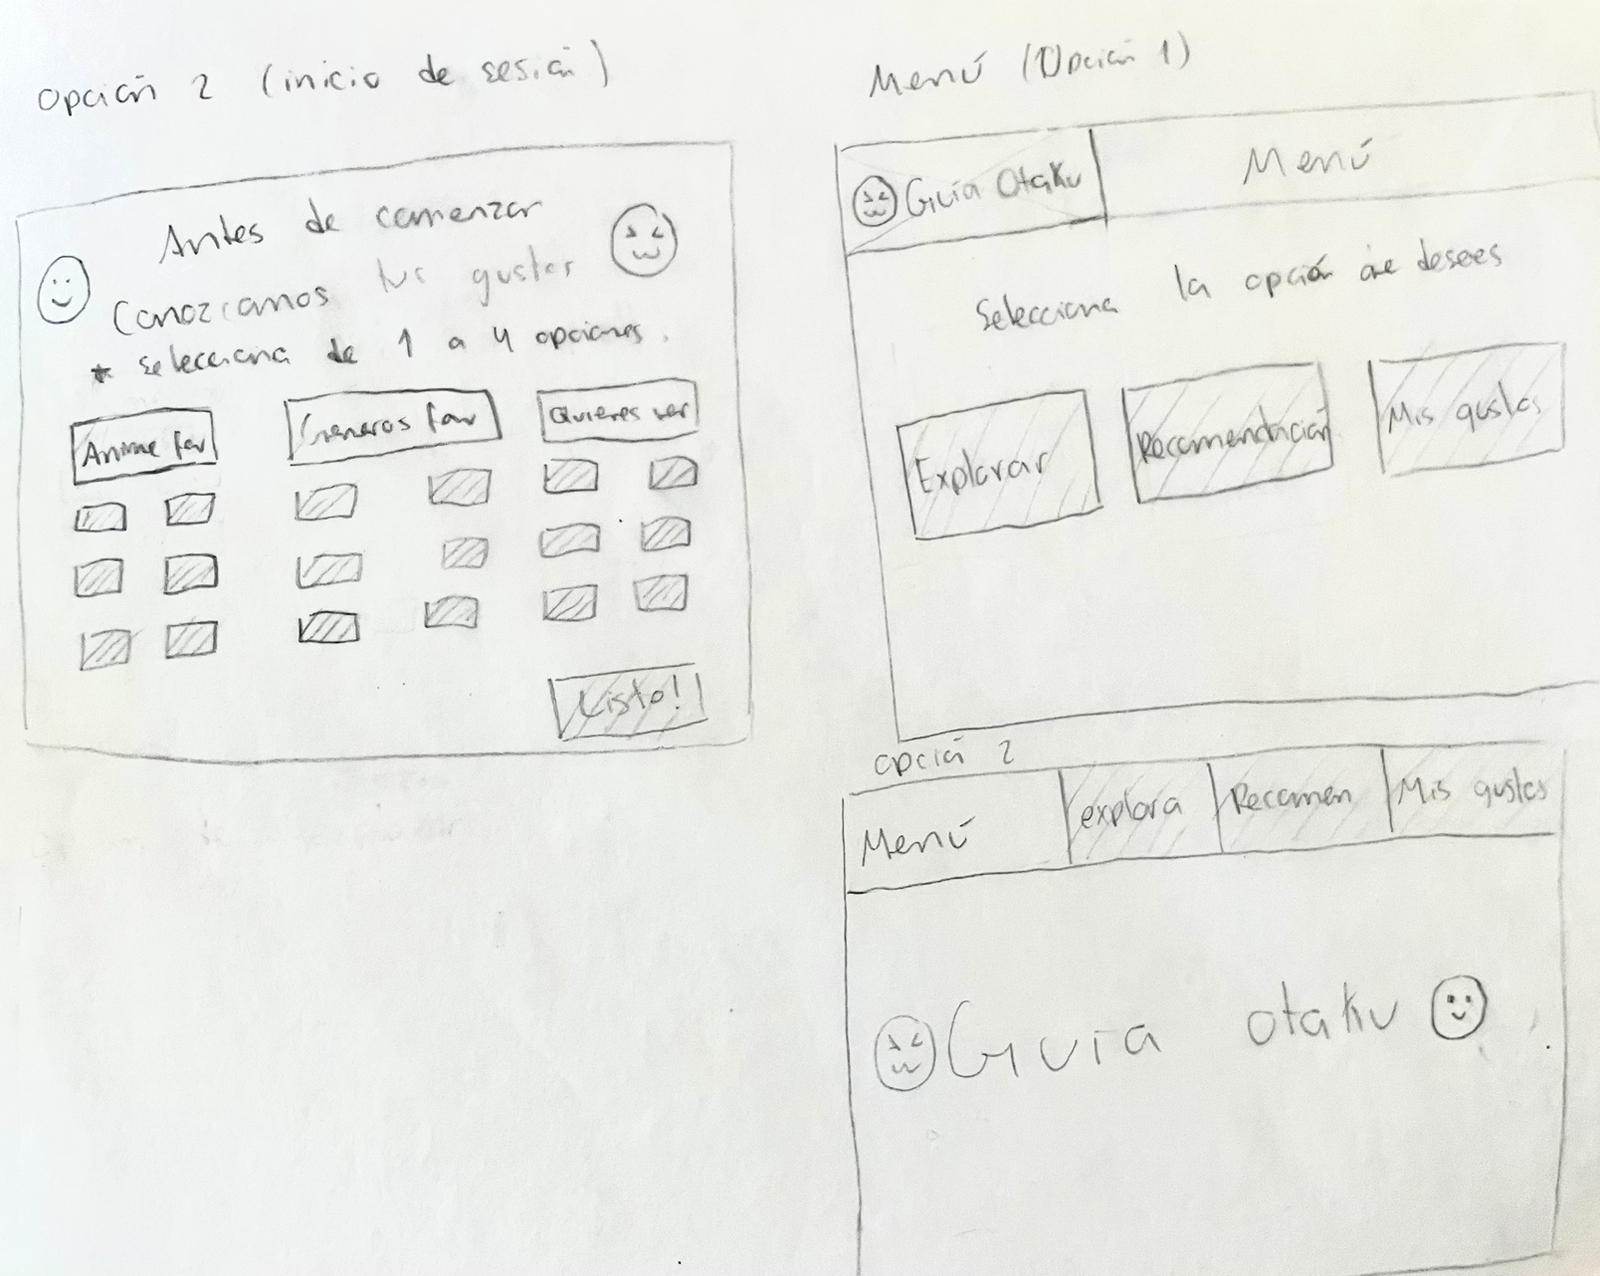 Opción 2 (inicio de sesión)
Antes de comenzar
Conozcamos tus gustos
* selecciona de 1 a 4 opciones.
Anime fav
Generos fav
Quieres ver
Listo!
Menú (Opción 1)
Guía Otaku
Menú
Selecciona la opción que desees
Explorar
Recomendación
Mis gustos
opción 2
Menú
explora
Recomen
Mis gustos
Guia otaku